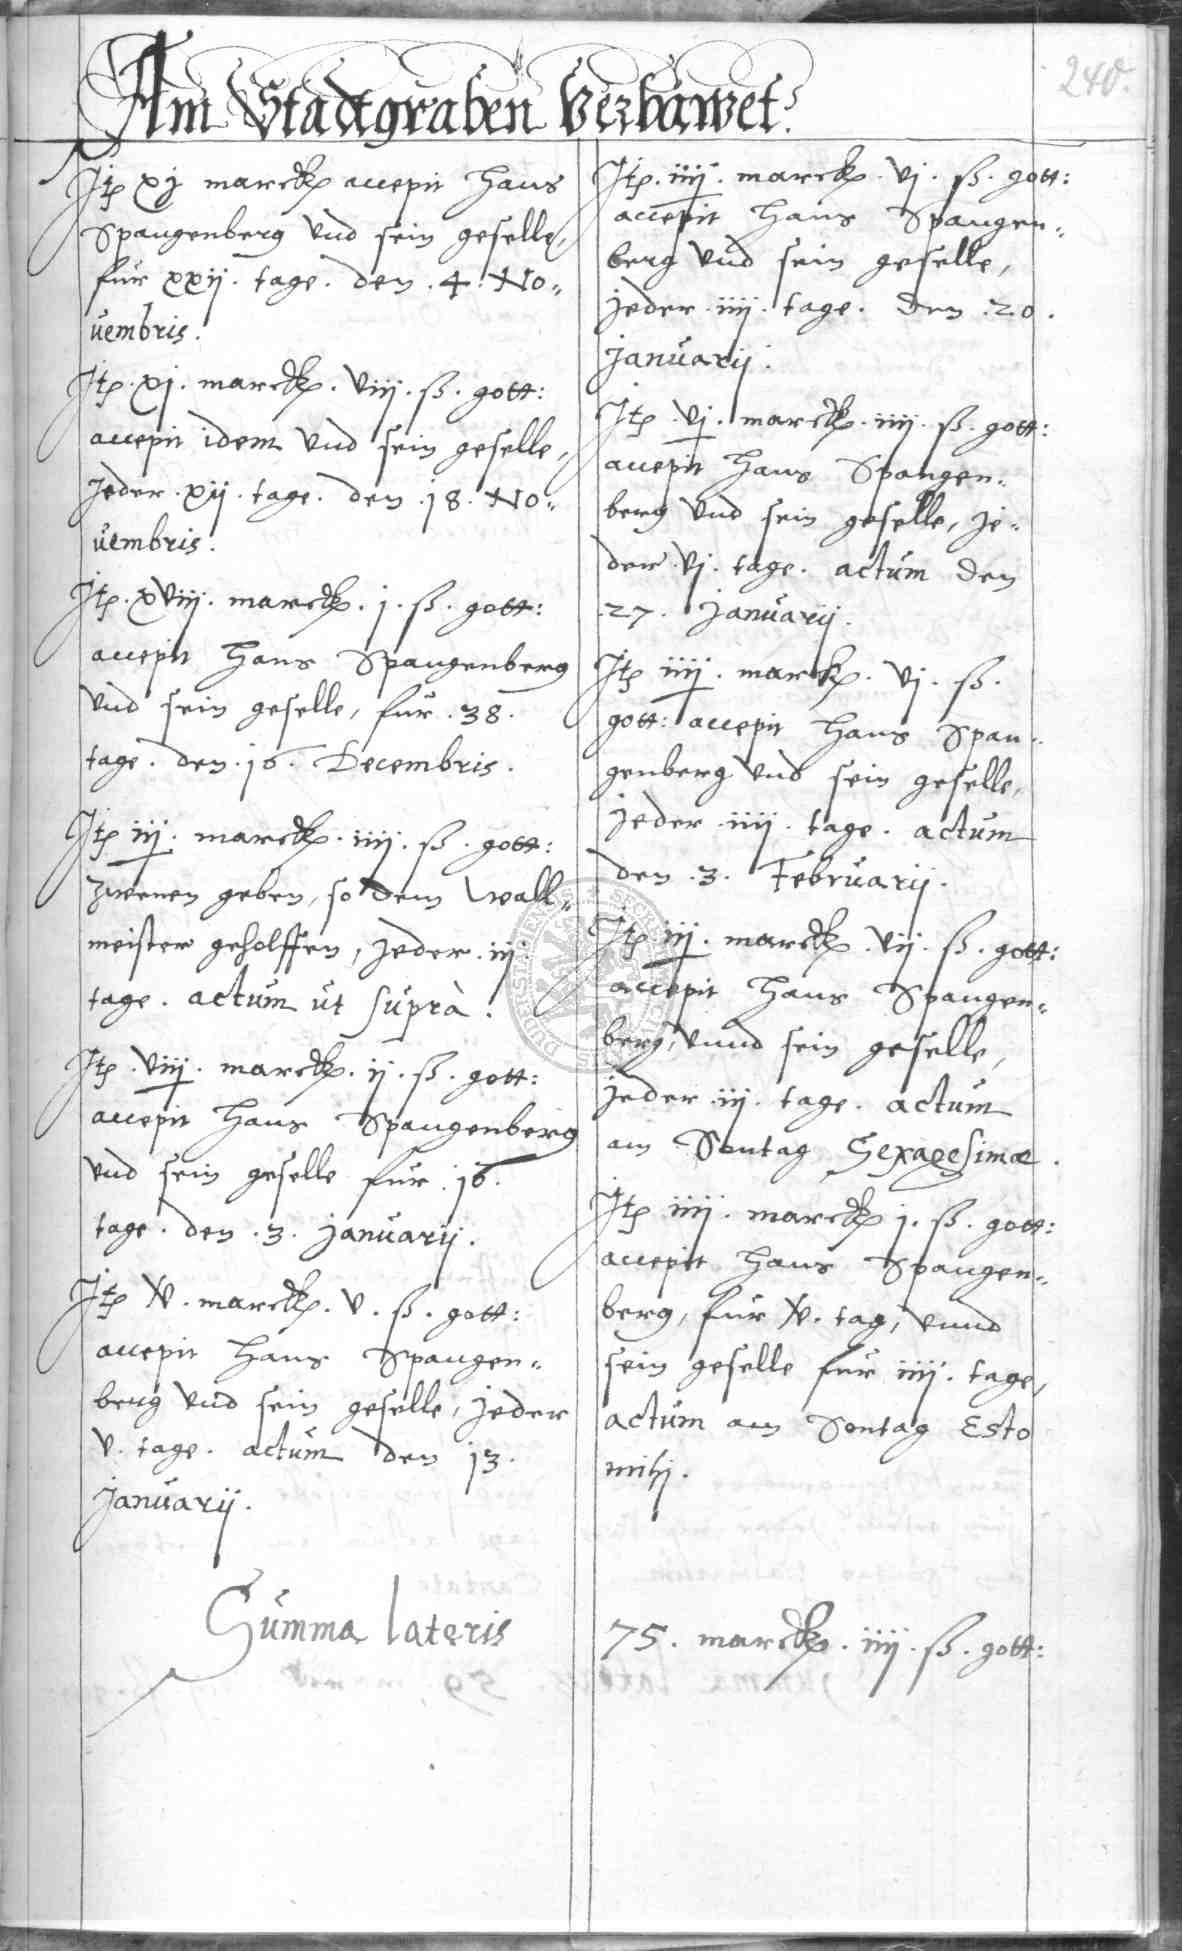 240.
Am Stadtgraben Verbawet.
Jtem xj marck accepit Hans
Spangenberg vnd sein geselle,
fur xxij. tage. den .4. No-
uembris.
Jtem .xj. marck. viij. ß. gott:
accepit idem vnd sein geselle,
Jeder .xij. tage. den .18. No-
uembris.
Jtem .xviij. marck. j. ß. gott:
accepit Hans Spangenberg
vnd sein geselle, fur .38.
tage. den .16. Decembris.
Jtem iij. marck. iiij. ß. gott:
zweenen geben, so dem wall-
meister geholffen, Jeder .iij.
tage. actum ut suprà.
Jtem .viij. marck. ij. ß. gott:
accepit Hans Spangenberg
vnd sein geselle fur .16.
tage. den .3. Januarij.
Jtem v. marck. v. ß. gott:
accepit Hans Spangen-
berg vnd sein geselle, Jeder
v. tage. actum den 13.
Januarij.
Jtem. iiij. marck. vj. ß. gott:
accepit Hans Spangen-
berg vnd sein geselle,
Jeder .iiij. tage. den .20.
Januarij.
Jtem .vj. marck. iiij. ß. gott:
accepit Hans Spangen-
berg vnd sein geselle, Je-
der .vj. tage. actum den
.27. Januarij.
Jtem iiij. marck. vj. ß.
gott: accepit Hans Span-
genberg vnd sein geselle,
Jeder .iiij. tage. actum
den .3. Februarij.
Jtem .iij. marck. vij. ß. gott:
accepit Hans Spangen-
berg, vnnd sein geselle,
Jeder .iij. tage. actum
am Sontag Sexagesimæ.
Jtem iiij. marck j. ß. gott:
accepit Hans Spangen-
berg, fur v. tag, vnnd
sein geselle fur iiij. tage,
actum am Sontag Esto
mihj.
Summa lateris 75. marck. iiij. ß. gott: